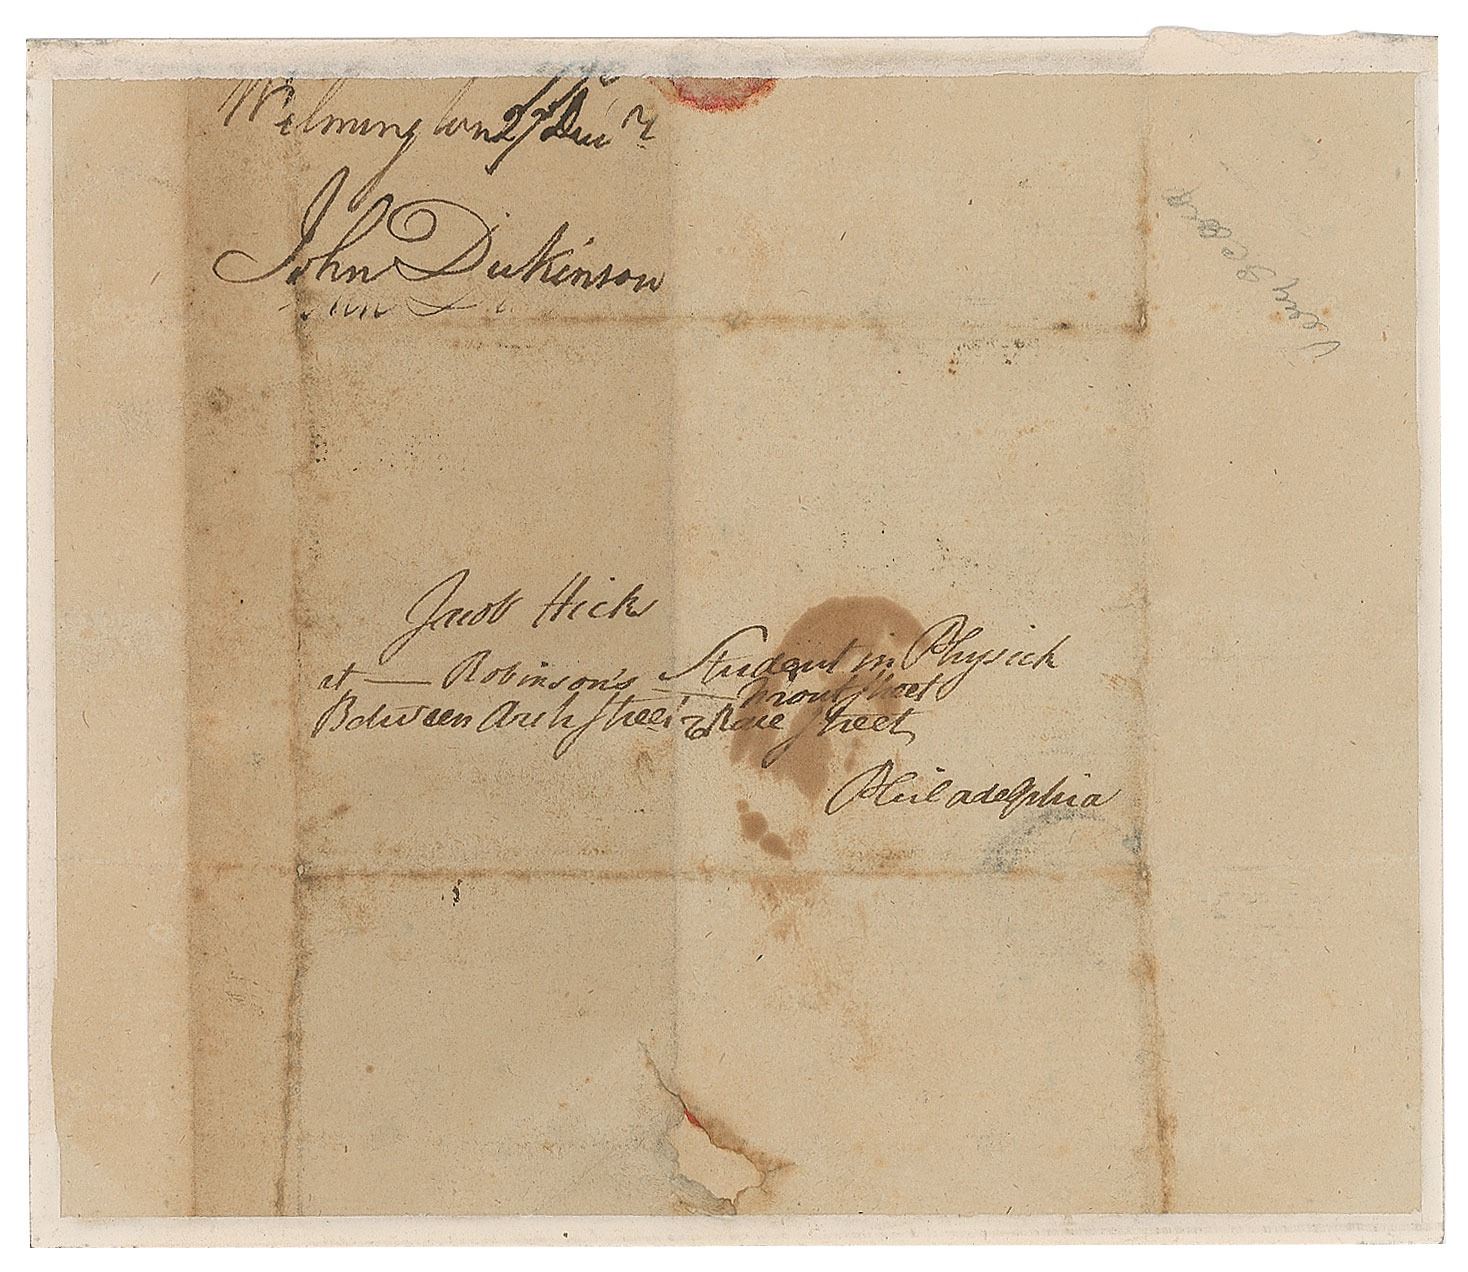 Wilmington 27 Dec.r
John Dickinson
Jacob Hick
Student in Physick
at — Robinson's — Front Street
Between Arch Street & Race Street
Philadelphia
Very Scarce